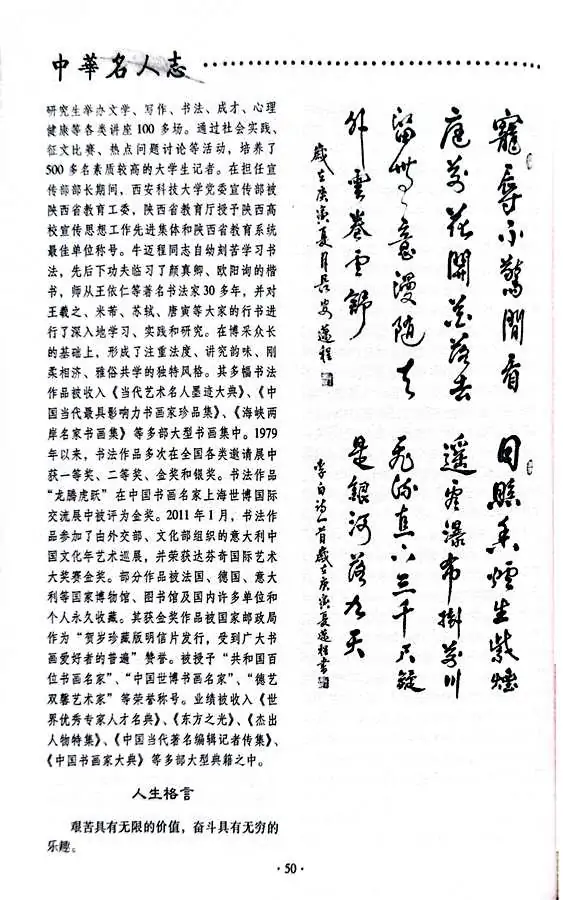 中華名人志
研究生举办文学、写作、书法、成才、心理
健康等各类讲座 100 多场。通过社会实践、
征文比赛、热点问题讨论等活动，培养了
500 多名素质较高的大学生记者。在担任宣
传部部长期间，西安科技大学党委宣传部被
陕西省教育工委，陕西省教育厅授予陕西高
校宣传思想工作先进集体和陕西省教育系统
最佳单位称号。牛迈程同志自幼刻苦学习书
法，先后下功夫临习了颜真卿、欧阳询的楷
书，师从王依仁等著名书法家 30 多年，并对
王羲之、米芾、苏轼、唐寅等大家的行书进
行了深入地学习、实践和研究。在博采众长
的基础上，形成了注重法度、讲究韵味、刚
柔相济、雅俗共学的独特风格。其多幅书法
作品被收入《当代艺术名人墨迹大典》、《中
国当代最具影响力书画家珍品集》、《海峡两
岸名家书画集》等多部大型书画集中。1979
年以来，书法作品多次在全国各类邀请展中
获一等奖、二等奖、金奖和银奖。书法作品
“龙腾虎跃”在中国书画名家上海世博国际
交流展中被评为金奖。2011 年 1 月，书法作
品参加了由外交部、文化部组织的意大利中
国文化年艺术巡展，并荣获达芬奇国际艺术
大奖赛金奖。部分作品被法国、德国、意大
利等国家博物馆、图书馆及国内许多单位和
个人永久收藏。其获金奖作品被国家邮政局
作为“贺岁珍藏版明信片发行，受到广大书
画爱好者的普遍”赞誉。被授予“共和国百
位书画名家”、“中国世博书画名家”、“德艺
双馨艺术家”等荣誉称号。业绩被收入《世
界优秀专家人才名典》、《东方之光》、《杰出
人物特集》、《中国当代著名编辑记者传集》、
《中国书画家大典》等多部大型典籍之中。
人生格言
艰苦具有无限的价值，奋斗具有无穷的
乐趣。
寵辱不驚閒看
庭前花開花落去
留無意漫隨天
外雲卷雲舒
歲在庚寅夏月長安邁程
日照香爐生紫煙
遙看瀑布掛前川
飛流直下三千尺疑
是銀河落九天
李白詩一首歲在庚寅夏邁程書
·50·